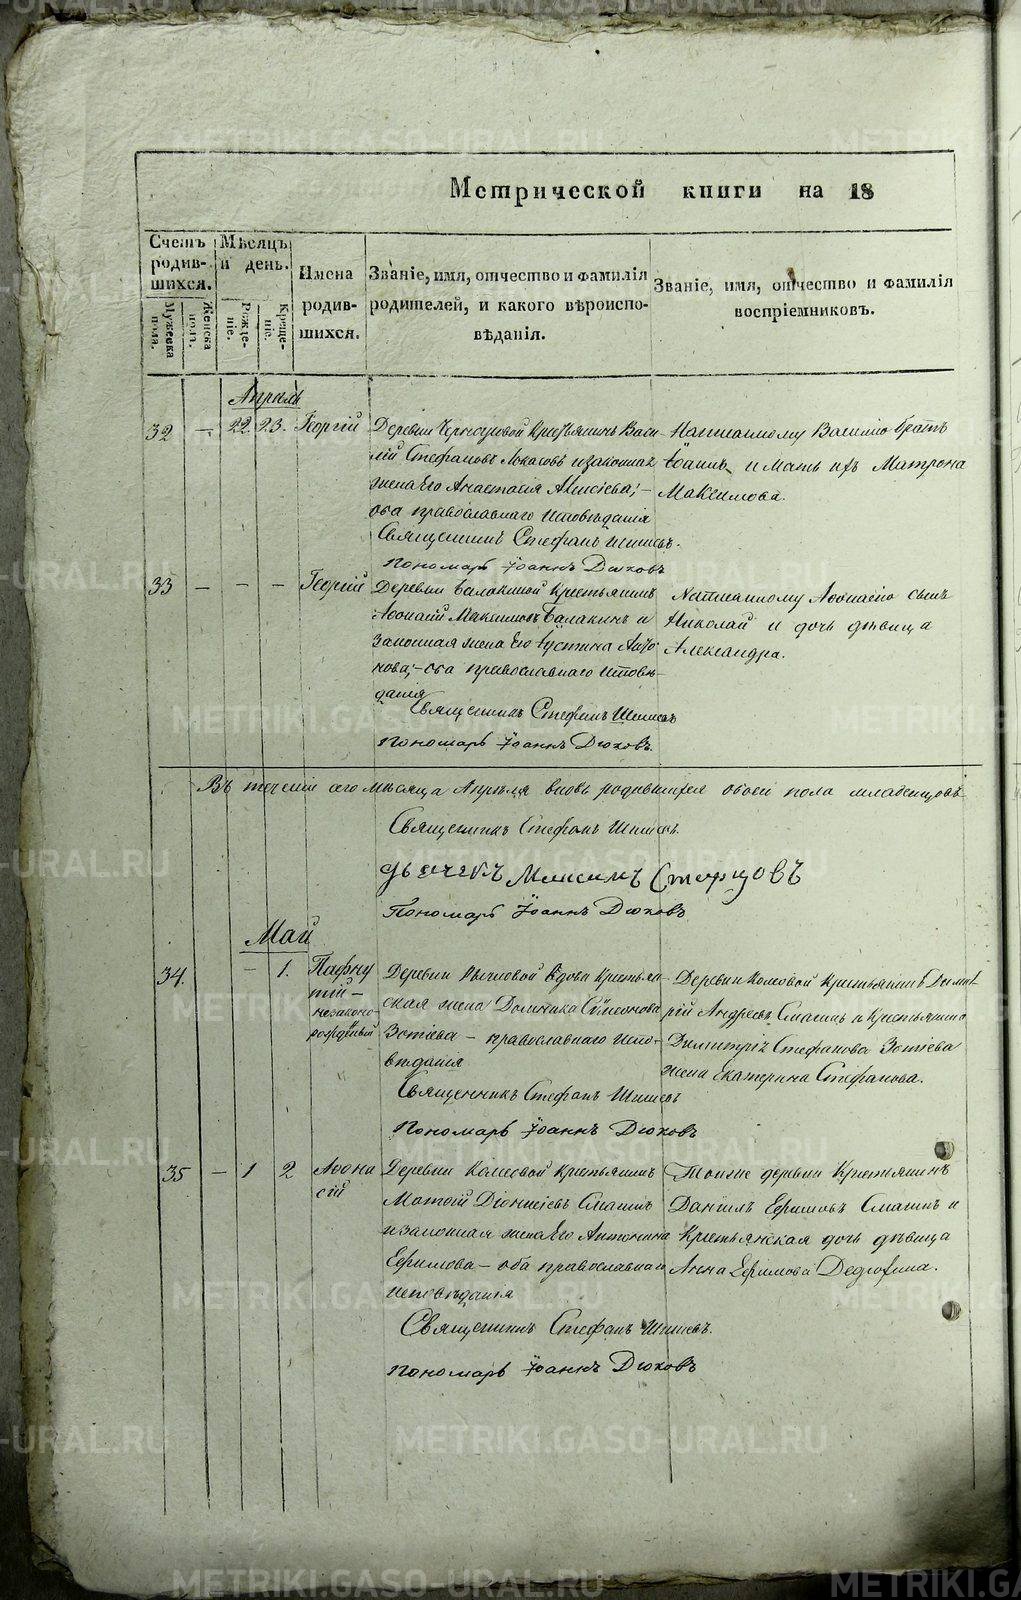 Метрической книги на 18
Счетъ родив-шихся.
Мужеска пола.
Женска пола.
Мѣсяцъ и день.
Рожде-ніе.
Креще-ніе.
Имена родив-шихся.
Званіе, имя, отчество и фамилія
родителей, и какого вѣроиспо-
вѣданія.
Званіе, имя, отчество и фамилія
воспріемниковъ.
Апрѣль
32 — 22. 23. Георгій
Деревни Крестьянинъ Васи-
лій Стефановъ и законная
жена Его Анастасія Алексіева; —
оба православнаго исповѣданія
Священникъ Стефанъ
Пономарь Іоаннъ Дюховъ
Написанному Василію братъ
Іоаннъ и мать ихъ Матрона
Максимова.
33 — — — Георгій
Деревни Балакиной Крестьянинъ
Аѳонасій Максимовъ Балакинъ и
законная жена Его Іустина
нова; — оба православнаго исповѣ-
данія
Священникъ Стефанъ
Пономарь Іоаннъ Дюховъ.
Написанному Аѳонасію сынъ
Николай и дочь дѣвица
Александра.
Въ теченіи сего мѣсяца Апрѣля вновь родившихся обоего пола младенцовъ
Священникъ Стефанъ
Дьячекъ Максимъ Старцовъ
Пономарь Іоаннъ Дюховъ
Май
34. — 1. Пафну
тій —
незаконо-
рожденный
Деревни вдова Крестьян
ская жена Домника Симеонова
Зотіева — православнаго испо-
вѣданія
Священникъ Стефанъ
Пономарь Іоаннъ Дюховъ
Деревни Комовой Крестьянинъ Димит
рій Андреевъ Смагинъ и Крестьянина
Димитрія Стефанова Зотіева
жена Екатерина Стефанова.
35 — 1 2 Аѳона
сій
Деревни Комовой Крестьянинъ
Матѳій Діонисіевъ Смагинъ
и законная жена Его Антонина
Ефимова — оба православнаго
исповѣданія
Священникъ Стефанъ
Пономарь Іоаннъ Дюховъ
Тоиже деревни Крестьянинъ
Даніилъ Ефимовъ Смагинъ и
Крестьянская дочь дѣвица
Анна Ефимова Дедюхина.
METRIKI.GASO-URAL.RU